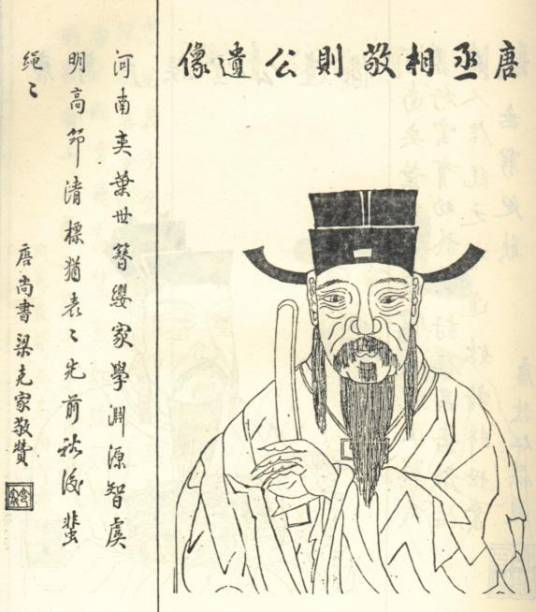 唐丞相敬則公遺像
河南奕葉世簪纓家學淵源智虞
明高節清標猶表〻光前裕後蜚
繩〻
唐尚書梁克家敬贊